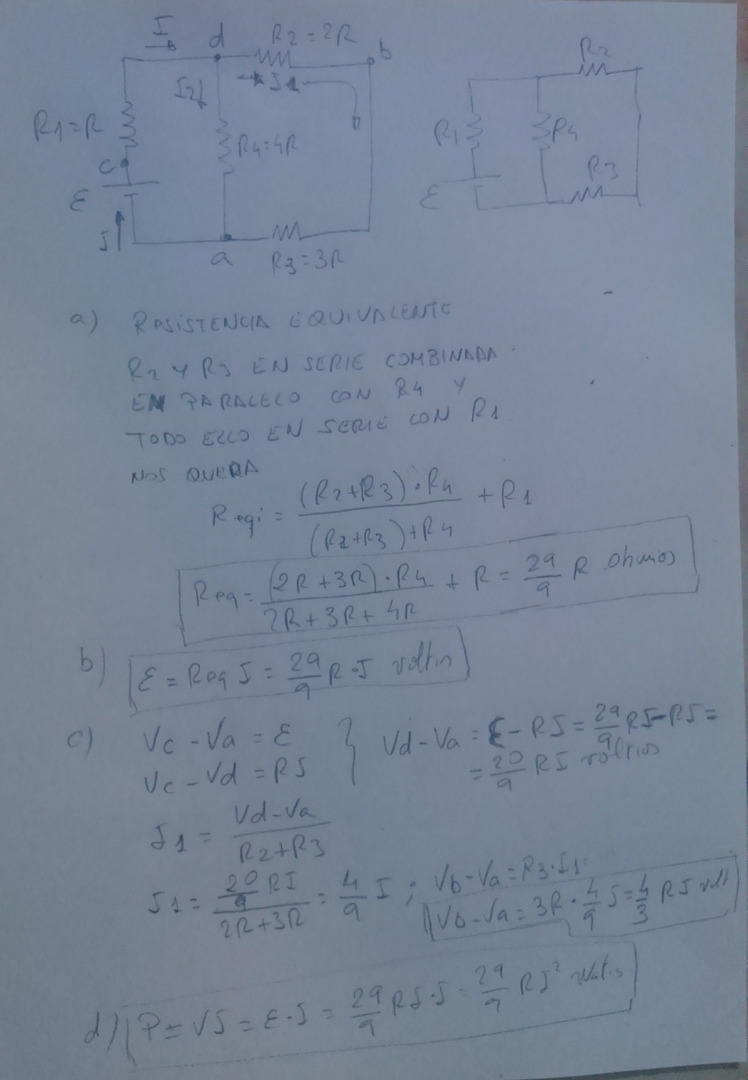 I
d
R2 = 2R
b
I2
I1
R1=R
R4=4R
c
ε
I
a
R3=3R
R2
R1
R4
R3
ε
a) RESISTENCIA EQUIVALENTE
R2 Y R3 EN SERIE COMBINADA
EN PARALELO CON R4 Y
TODO ELLO EN SERIE CON R1
NOS QUEDA
Reqi = (R2+R3)·R4 / (R2+R3)+R4 + R1
Req = (2R+3R)·R4 / 2R+3R+4R + R = 29/9 R Ohmos
b) ε = Req I = 29/9 R·I voltios
c) Vc - Va = ε } Vd - Va = ε - RI = 29/9 RI - RI =
Vc - Vd = RI = 20/9 RI voltios
I1 = Vd-Va / R2+R3
I1 = 20/9 RI / 2R+3R = 4/9 I ; Vb-Va = R3·I1
Vb-Va = 3R · 4/9 I = 4/3 RI volt
d) P = VI = ε·I = 29/9 RI·I = 29/9 RI² Watios